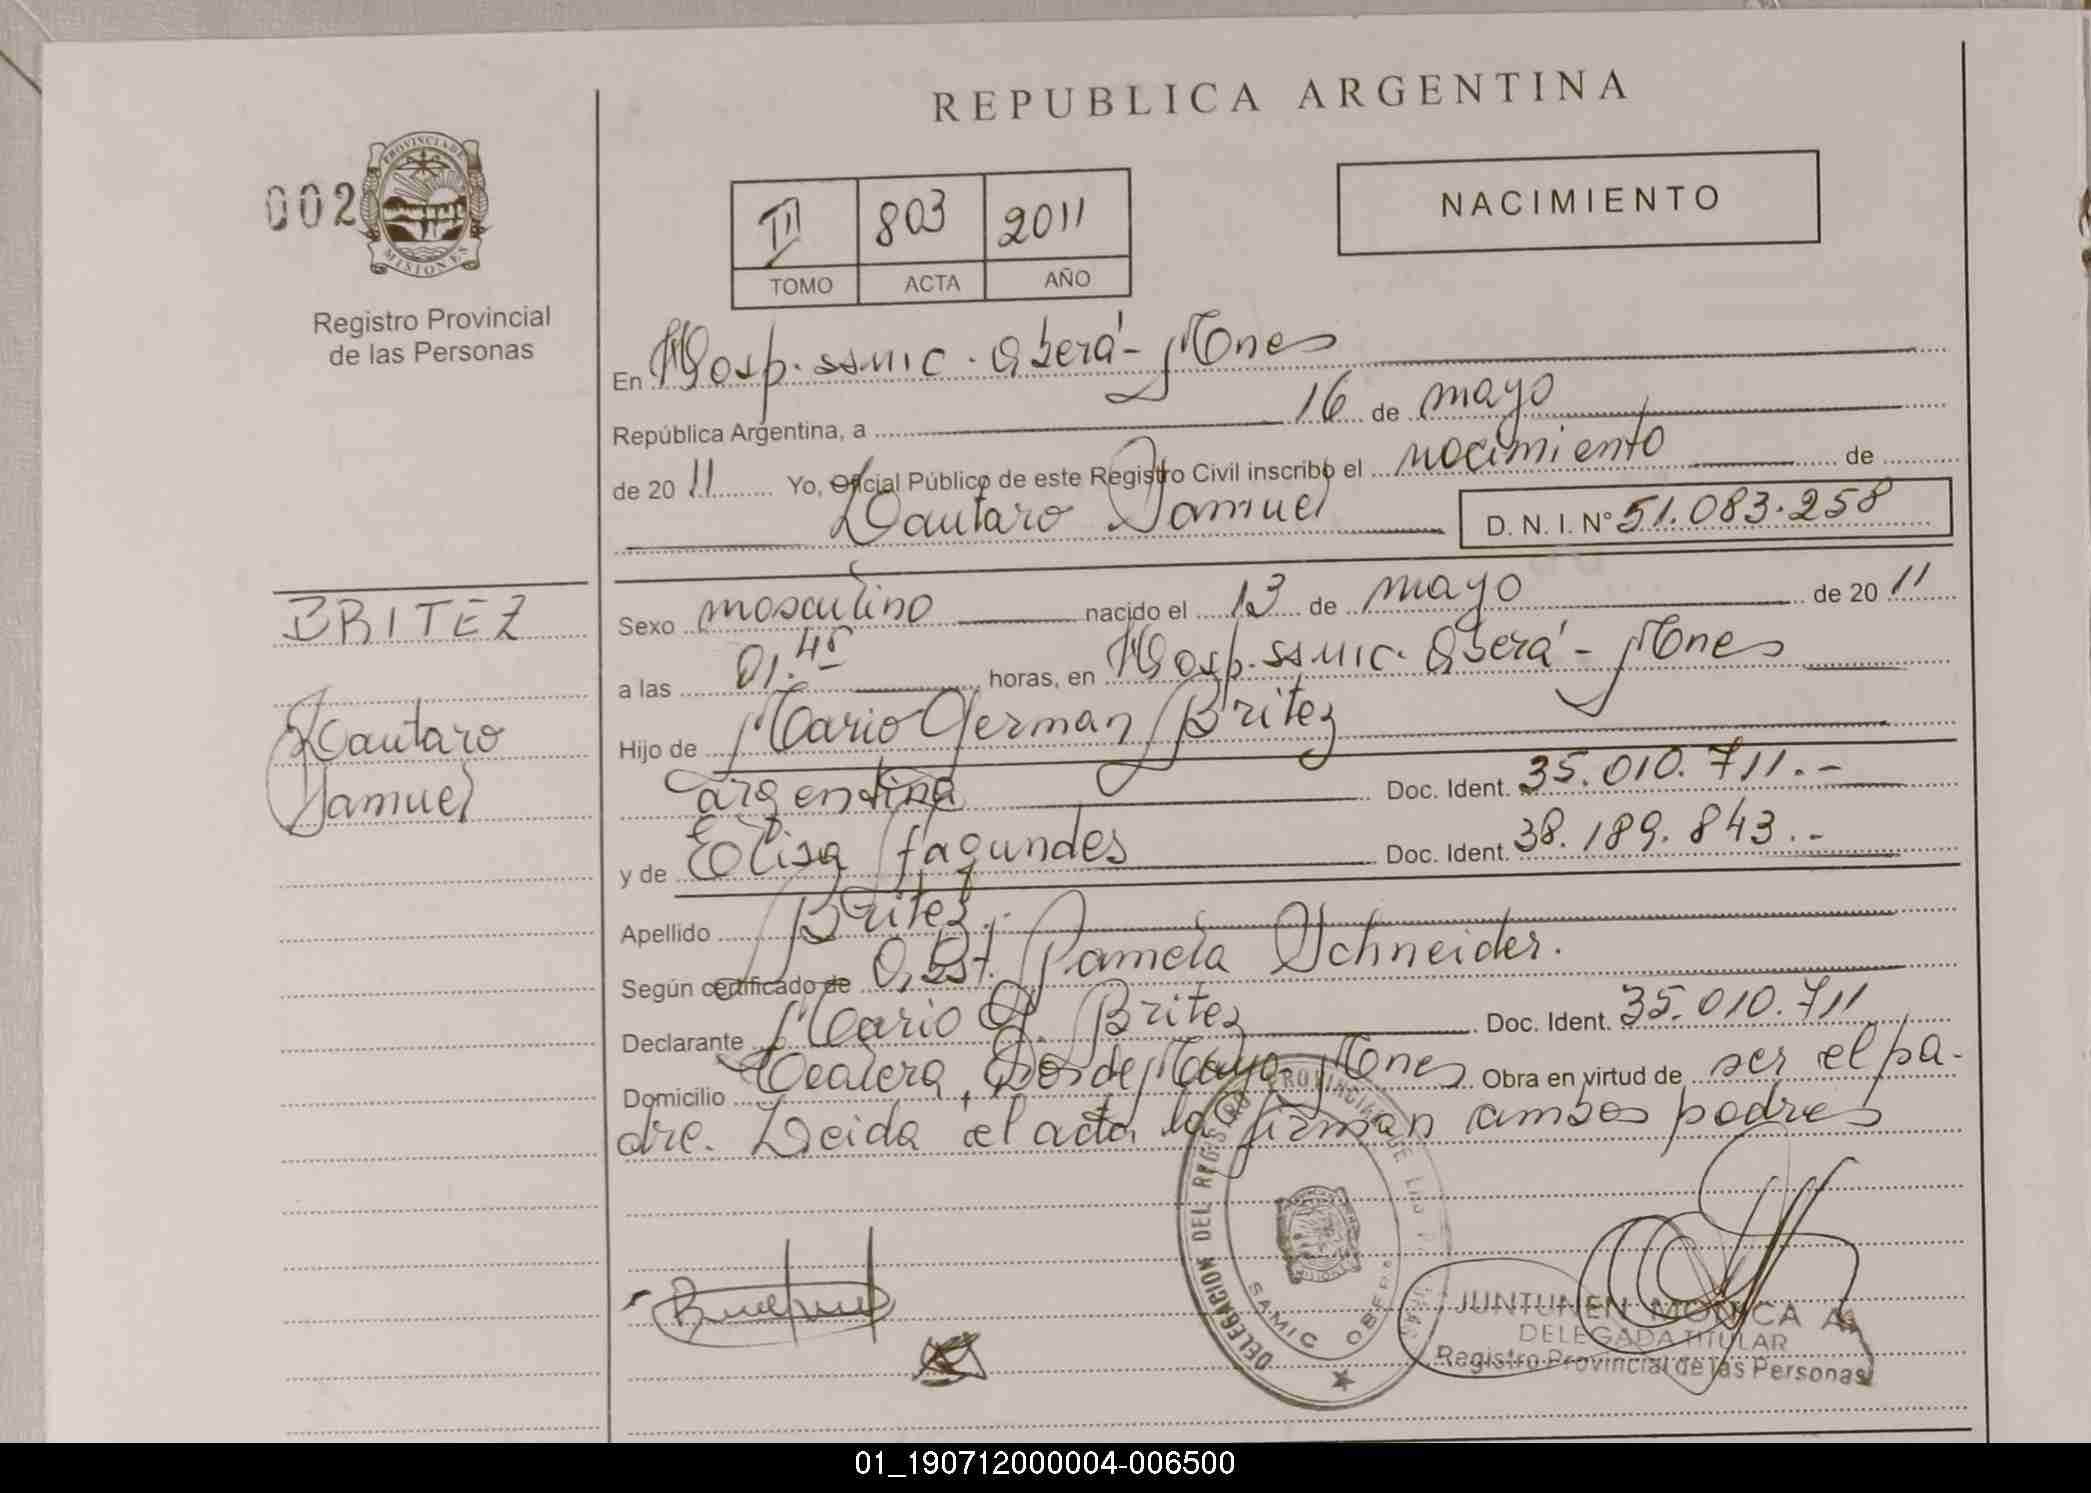 REPUBLICA ARGENTINA
002
PROVINCIA DE
MISIONES
Registro Provincial
de las Personas
III 803 2011
TOMO ACTA AÑO
NACIMIENTO
En Hosp. SSMIC. Oberá - Mones
República Argentina, a 16 de mayo
de 2011 Yo, Oficial Público de este Registro Civil inscribo el nacimiento de
Lautaro Samuel D. N. I. Nº 51.083.258
BRITEZ
Lautaro
Samuel
Sexo masculino nacido el 13 de mayo de 2011
a las 01.45 horas, en Hosp. SSMIC. Oberá - Mones
Hijo de Mario German Britez
argentina Doc. Ident. 35.010.711.-
y de Elisa fagundes Doc. Ident. 38.189.843.-
Apellido Britez.
Según certificado de Obst. Pamela Schneider.
Declarante Mario G. Britez Doc. Ident. 35.010.711
Domicilio Dos de Mayo - Mones Obra en virtud de ser el pa-
dre. Leida el acta la firman ambos padres
DELEGACION DEL REGISTRO PROVINCIAL DE LAS
SAMIC OBERA
JUNTUNEN MONICA A.
DELEGADA TITULAR
Registro Provincial de las Personas
01_190712000004-006500